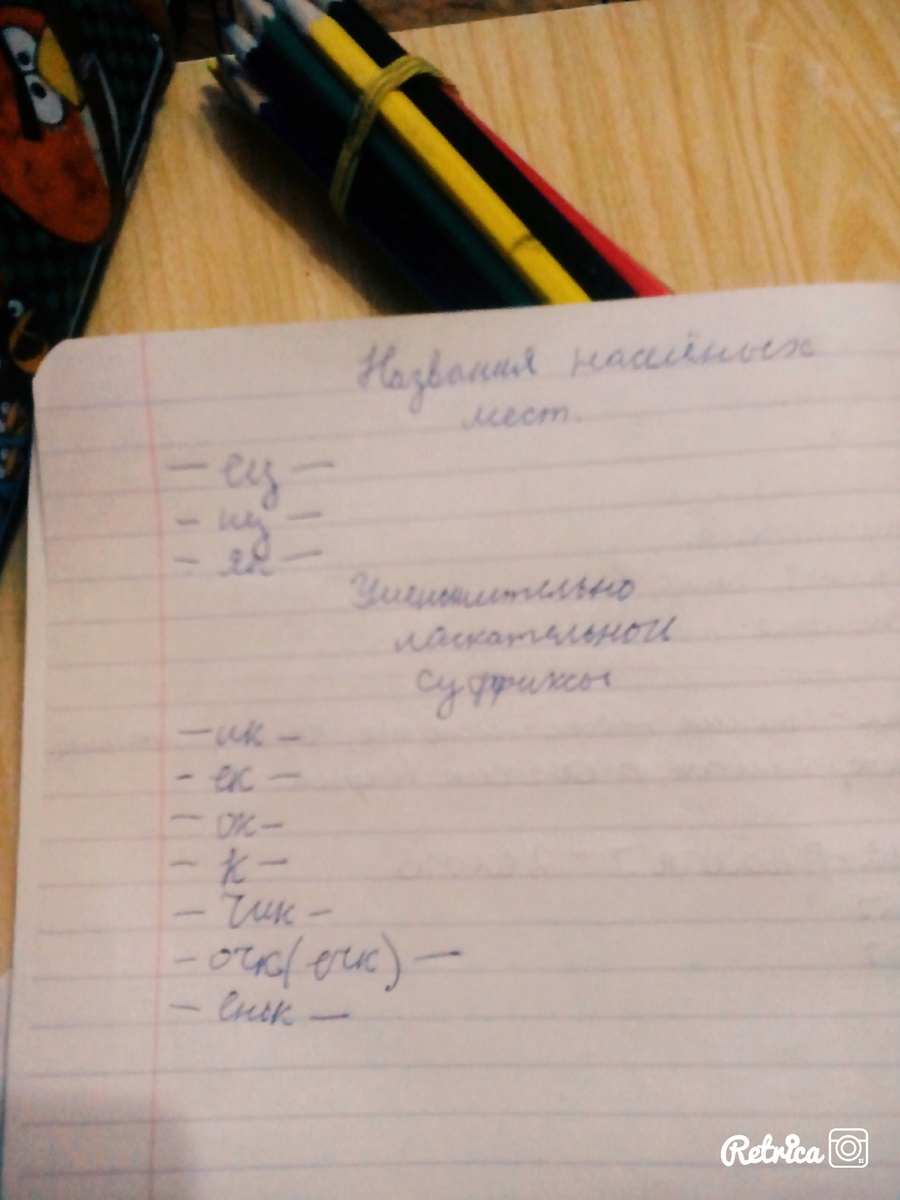 Названия населёных
мест.
- ец -
- иц -
- ян -
Уменьшительно
ласкательной
суффиксы
- ик -
- ек -
- ок -
- к -
- чик -
- очк(ечк) -
- еньк -
Retrica